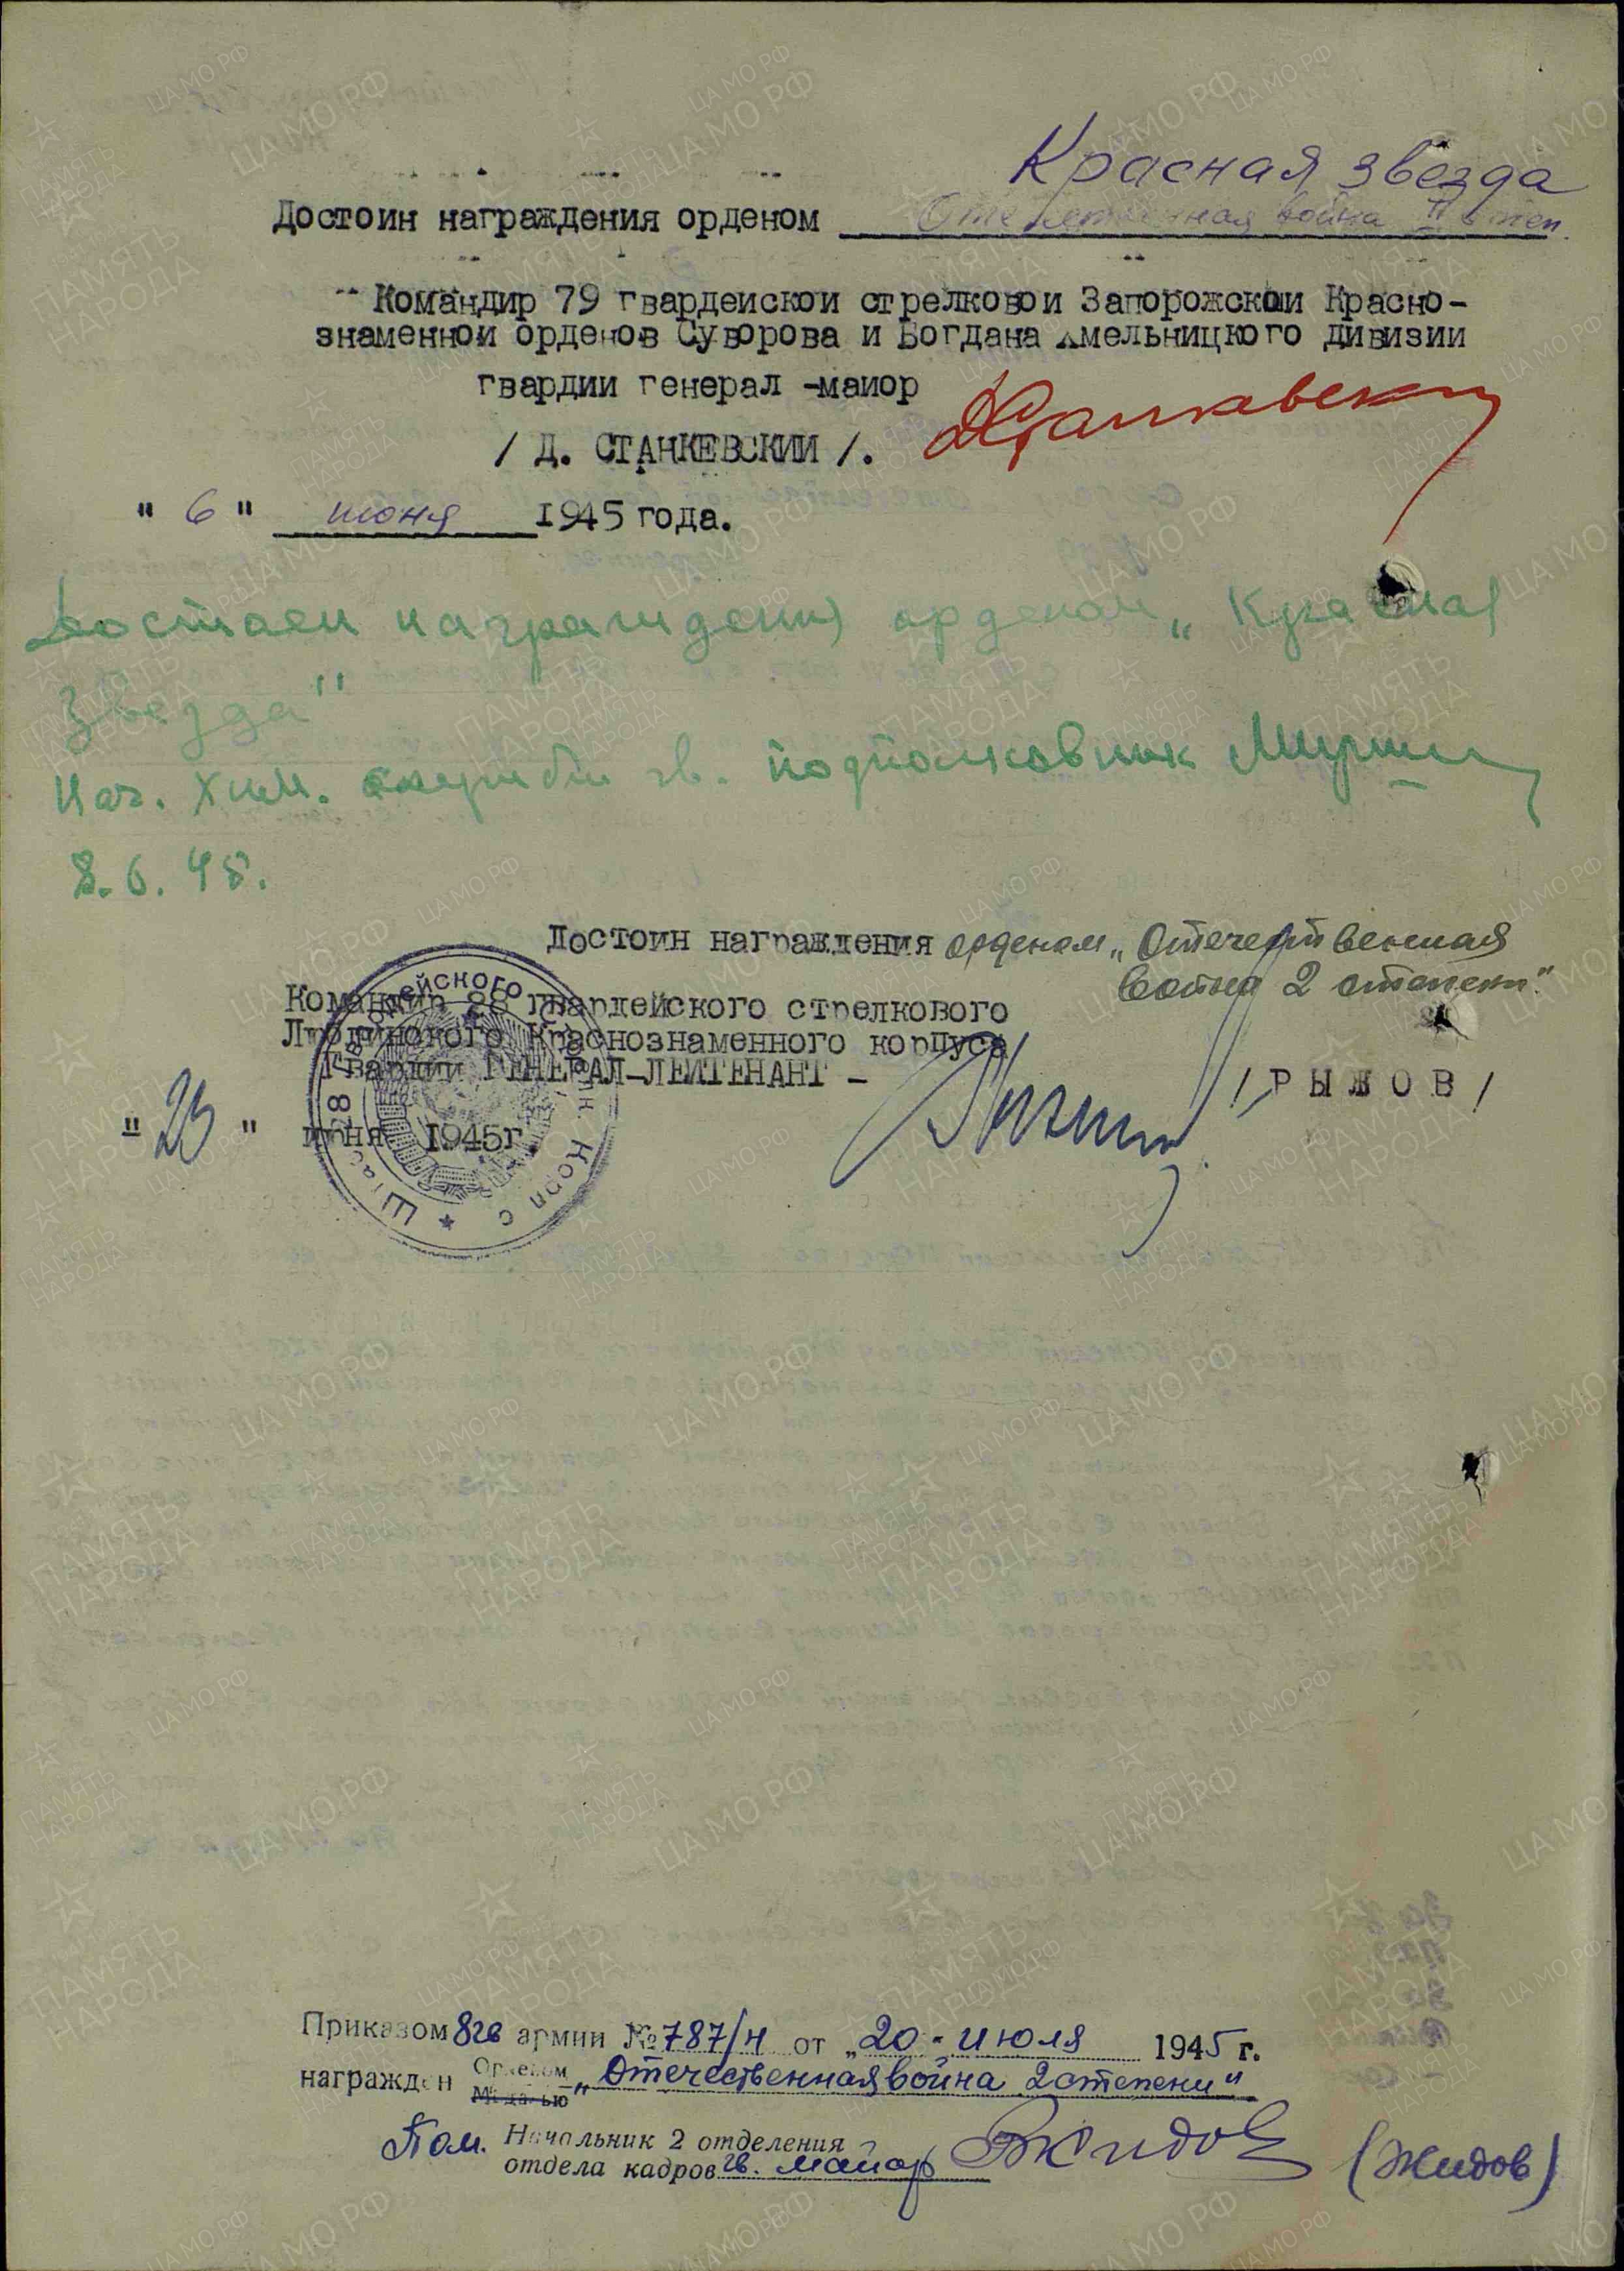 Красная звезда
Достоин награждения орденом Отечественная война II степ.
Командир 79 гвардейской стрелковой Запорожской Красно-
знаменной орденов Суворова и Богдана Хмельницкого дивизии
гвардии генерал -майор
/ Д. СТАНКЕВСКИЙ /.
"6" июня 1945 года.
Достоен награждения орденом „Красная
Звезда"
Нач. Хим. службы гв. подполковник
8.6.45.
Достоин награждения орденом „Отечественная
война 2 степени".
Командир 28 гвардейского стрелкового
Люблинского Краснознаменного корпуса
Гвардии ГЕНЕРАЛ-ЛЕЙТЕНАНТ -
/РЫЖОВ/
"23" июня 1945г.
Приказом 8гв армии №787/н от „20" июля 1945 г.
награжден Орденом Медалью „Отечественная война 2 степени"
Пом. Начальник 2 отделения
отдела кадров гв. майор Жидов (Жидов)
ЦА МО РФ
ПАМЯТЬ НАРОДА